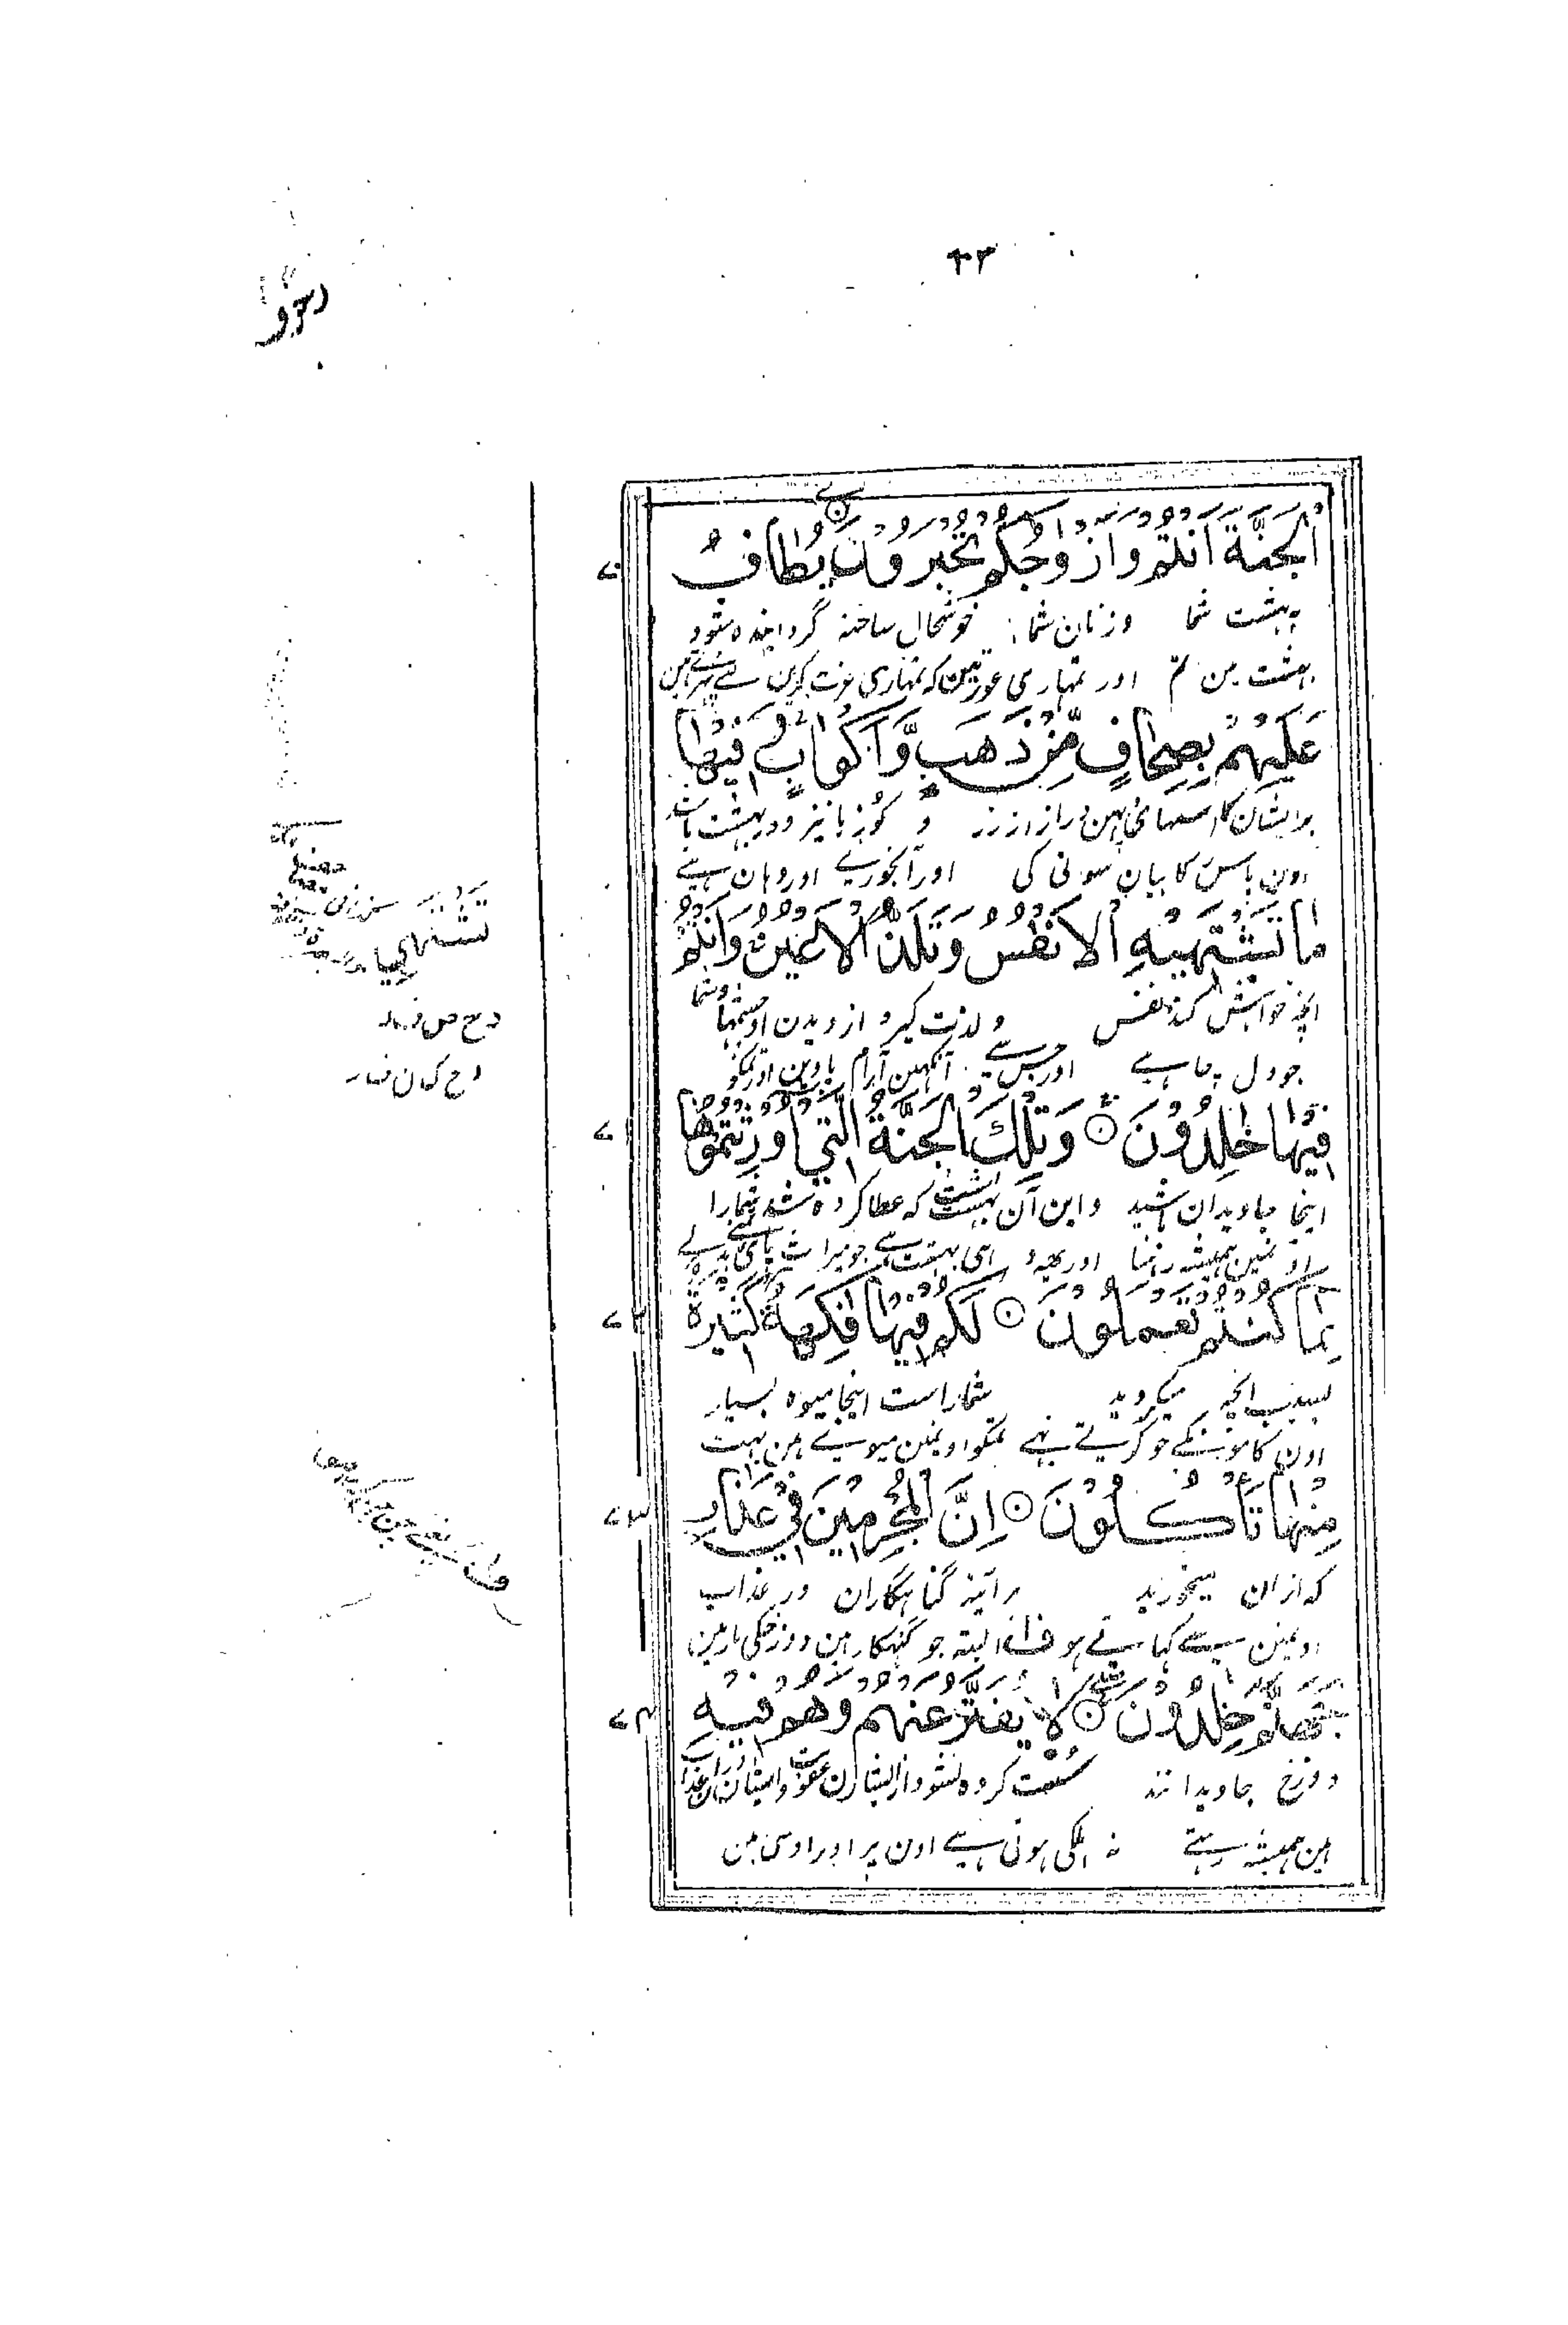 ۴۳
زخرف
الْجَنَّةَ اَنْتُمْ وَاَزْوَاجُكُمْ تُحْبَرُوْنَ يُطَافُ
۷۰
به بهشت شما وزنان شما خوشحال ساخته گردانیده شود
بهشت مین تم اور تمہاری عورتین کہ تمہاری عزت کرین لئے پہرتے ہین
عَلَيْهِمْ بِصِحَافٍ مِّنْ ذَهَبٍ وَّاَكْوَابٍ فِيْهَا
برایشان کاسهای پهن دراز از زر و کوزہا نیز ودر بهشت باشد
اون پاس رکابیان سونی کی اور آبخوری اور وہان ہے
مَا تَشْتَهِيْهِ الْاَنْفُسُ وَتَلَذُّ الْاَعْيُنُ وَاَنْتُمْ
آنچه خواهش کند نفس و لذت گیرد از دیدن او چشمها وشما
جو دل چاہے اور جس سے آنکہین آرام پاوین اور تمکو
فِيْهَا خٰلِدُوْنَ وَتِلْكَ الْجَنَّةُ الَّتِيْ اُوْرِثْتُمُوْهَا
۷۱
اینجا جاویدان باشید واین آن بهشت است که عطا کرده شد شمارا
اونمین ہمیشہ رہنا اور یہہ وہی بہشت ہے جو میراث پائی تمنے
بِمَا كُنْتُمْ تَعْمَلُوْنَ لَكُمْ فِيْهَا فَاكِهَةٌ كَثِيْرَةٌ
۷۲
بسبب آنچه میکردید شمار است اینجا میوه بسیار
اون کامونکے جو کرتے تہے تمکو اونمین میوے ہین بہت
مِنْهَا تَاْكُلُوْنَ اِنَّ الْمُجْرِمِيْنَ فِيْ عَذَابِ
۷۳
که از ان میخورید هر آینه گناہگاران در عذاب
اونمین سے کہاتے ہو ف البتہ جو گنہکار ہین دوزخکی مارمین
جَهَنَّمَ خٰلِدُوْنَ لَا يُفَتَّرُ عَنْهُمْ وَهُمْ فِيْهِ
۷۴
دوزخ جاویدانند سست کرده نشود از ایشان عقوبت وایشان دران عذاب
ہین ہمیشہ رہتے نہ ہلکی ہوتی ہے اون پر اور اوسی مین
تشتهي